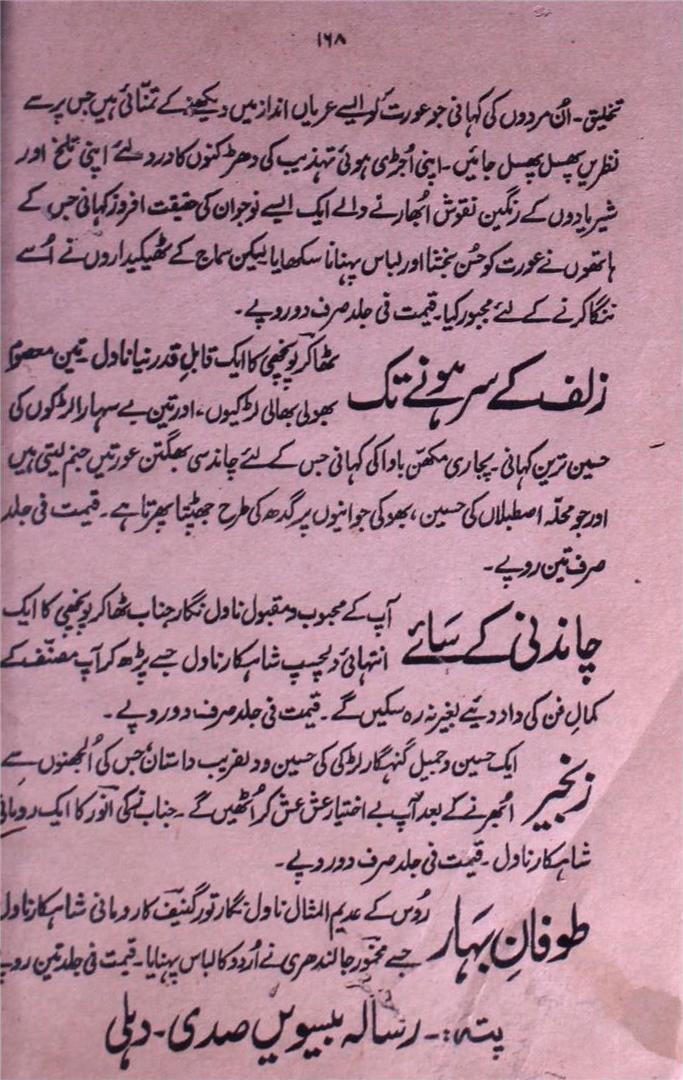 ۱۶۸
تخلیق۔ اُن مردوں کی کہانی جو عورت کو ایسے عریاں انداز میں دیکھنے کے تمنّائی ہیں جس پر سے
نظریں پھسل پھسل جائیں۔ اپنی اُجڑی ہوئی تہذیب کی دھڑکنوں کا درد لئے اپنی تلخ اور
شیریں یادوں کے رنگین نقوش اُبھارنے والے ایک ایسے نوجوان کی حقیقت افروز کہانی جس کے
ہاتھوں نے عورت کو حُسن بخشنا اور لباس پہنانا سکھایا لیکن سماج کے ٹھیکیداروں نے اُسے
ننگا کرنے کے لئے مجبور کیا۔ قیمت فی جلد صرف دو روپے۔
زلف کے سر ہونے تک
ٹھاکر پونچھی کا ایک قابلِ قدر نیا ناول۔ تین معصوم
بھولی بھالی لڑکیوں، اور تین بے سہارا لڑکوں کی
حسین ترین کہانی۔ پجاری مکھّن باوا کی کہانی جس کے لئے چاند سی بھگتن عورتیں جنم لیتی ہیں
اور جو محلّہ اصطبلاں کی حسین، بھوکی جوانیوں پر گدھ کی طرح جھپٹتا پھرتا ہے۔ قیمت فی جلد
صرف تین روپے۔
چاندنی کے سَائے
آپ کے محبوب و مقبول ناول نگار جناب ٹھاکر پونچھی کا ایک
انتہائی دلچسپ شاہکار ناول جسے پڑھ کر آپ مصنّف کے
کمالِ فن کی داد دیئے بغیر نہ رہ سکیں گے۔ قیمت فی جلد صرف دو روپے۔
زنجیر
ایک حسین و جمیل گنہگار لڑکی کی حسین و دلفریب داستان جس کی اُلجھنوں سے
اُبھرنے کے بعد آپ بے اختیار عش عش کر اُٹھیں گے۔ جناب زکی انور کا ایک رومانی
شاہکار ناول۔ قیمت فی جلد صرف دو روپے۔
طوفانِ بہَار
رُوس کے عدیم المثال ناول نگار تورگنیف کا رومانی شاہکار ناول
جسے مخمور جالندھری نے اُردو کا لباس پہنایا۔ قیمت فی جلد تین روپے
پتہ:۔ رسالہ بیسویں صدی۔ دہلی